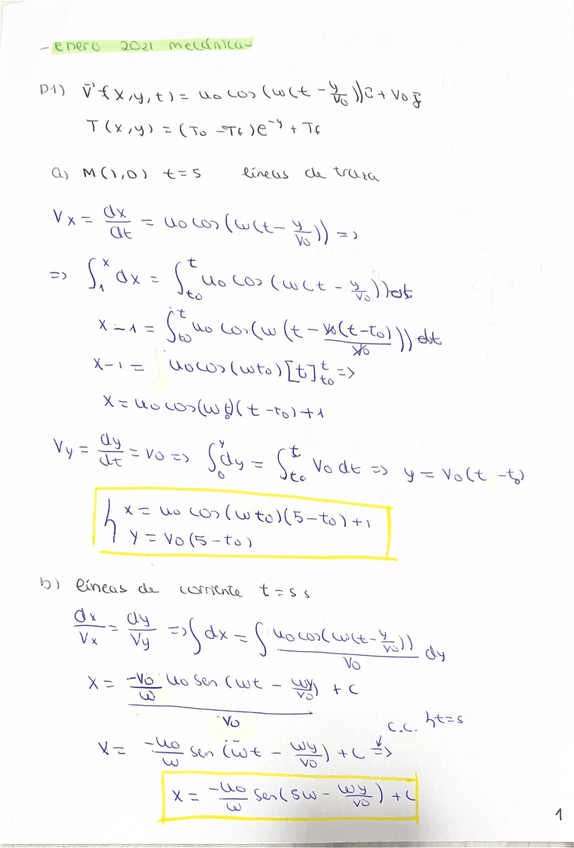 - enero 2021 mecánica
P1) V⃗f(x,y,t) = u0 cos(w(t - y/v0))i⃗ + v0 j⃗
T(x,y) = (T0 - Tf)e^-y + Tf
a) M(1,0) t=5 líneas de traza
Vx = dx/dt = u0 cos(w(t - y/v0)) =>
=> ∫_1^x dx = ∫_t0^t u0 cos(w(t - y/v0)) dt
x - 1 = ∫_t0^t u0 cos(w(t - v0(t-t0)/v0)) dt
x - 1 = u0 cos(wt0)[t]_t0^t =>
x = u0 cos(wt0)(t - t0) + 1
Vy = dy/dt = v0 => ∫_0^y dy = ∫_t0^t v0 dt => y = v0(t - t0)
{ x = u0 cos(wt0)(5-t0)+1
y = v0(5-t0)
b) líneas de corriente t=5s
dx/Vx = dy/Vy => ∫dx = ∫ u0 cos(w(t - y/v0))/v0 dy
x = -v0/w u0 sen(wt - wy/v0)/v0 + c
c.c. {t=5
x = -u0/w sen(wt - wy/v0) + c =>
x = -u0/w sen(5w - wy/v0) + c
1